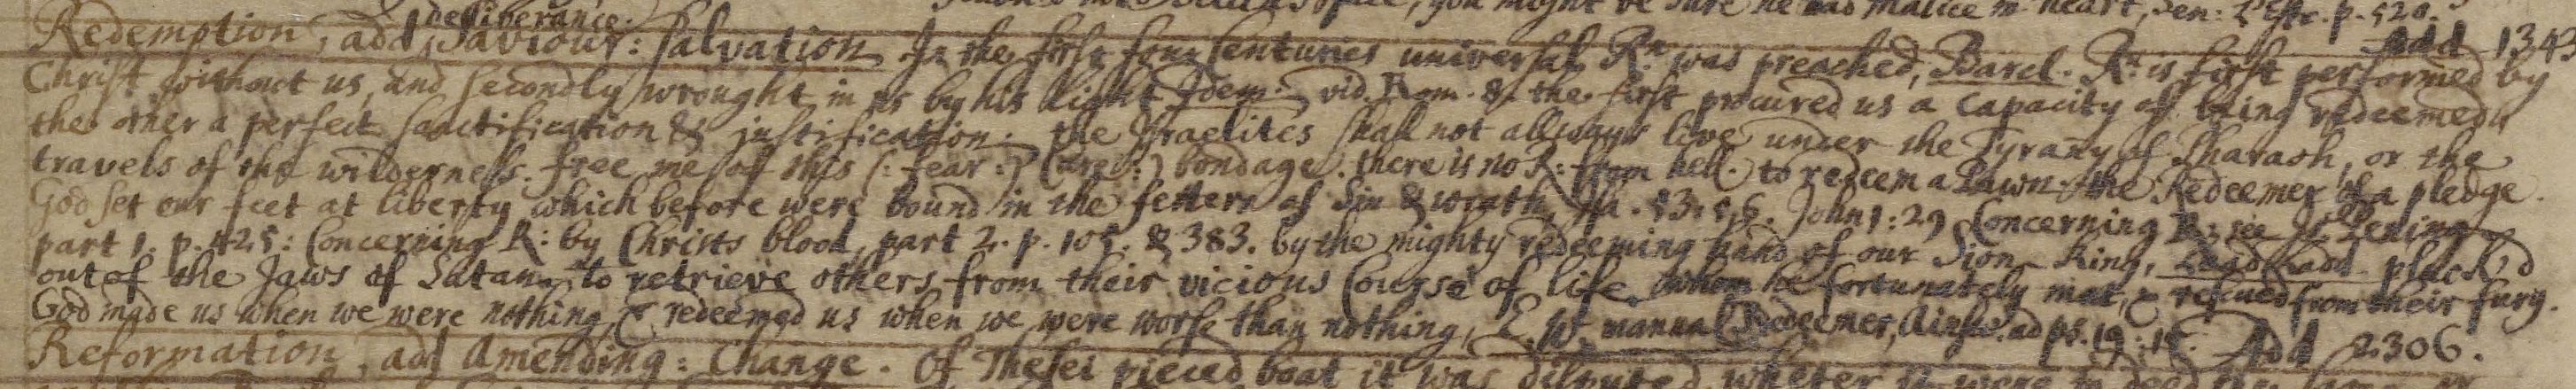 you might be sure he had malice in heart, Sen: Epist. p. 520.
deliberance.
Redemption, add, Saviour: Salvation. In the first four Centuries universal Rn. was preached, Barcl. Rn. is first performed by Add 1343
Christ without us, and secondly wrought in us by his light Idem: vid. Rom. 8. the first procured us a Capacity of being redeemed,
the other a perfect sanctification & justification. the Israelites shall not allways live under the Tyrany of Pharaoh, or the
travels of the wilderness. free me of this (: fear :) bondage. there is no R: from hell. to redeem a Pawn. the Redeemer of a pledge.
God set our feet at liberty which before were bound in the fetters of Sin & wrath, Isa. 53:5,6. John 1:29 Concerning R: see Is. Pening.
part 1. p. 425: Concerning R: by Christs blood, part 2. p. 105. & 383. by the mighty redeeming hand of our Sion-King, pluck'd
out of the Jaws of Satan, to retrieve others from their vicious Course of life, whom he fortunately met, & rescued from their fury.
God made us when we were nothing, & redeemed us when we were worse than nothing, E. W. manual Redeemer, Ainsw. ad ps. 19:15. Add 2306.
Reformation, add Amending: Change. Of Thesei pieced boat it was disputed, whether it were